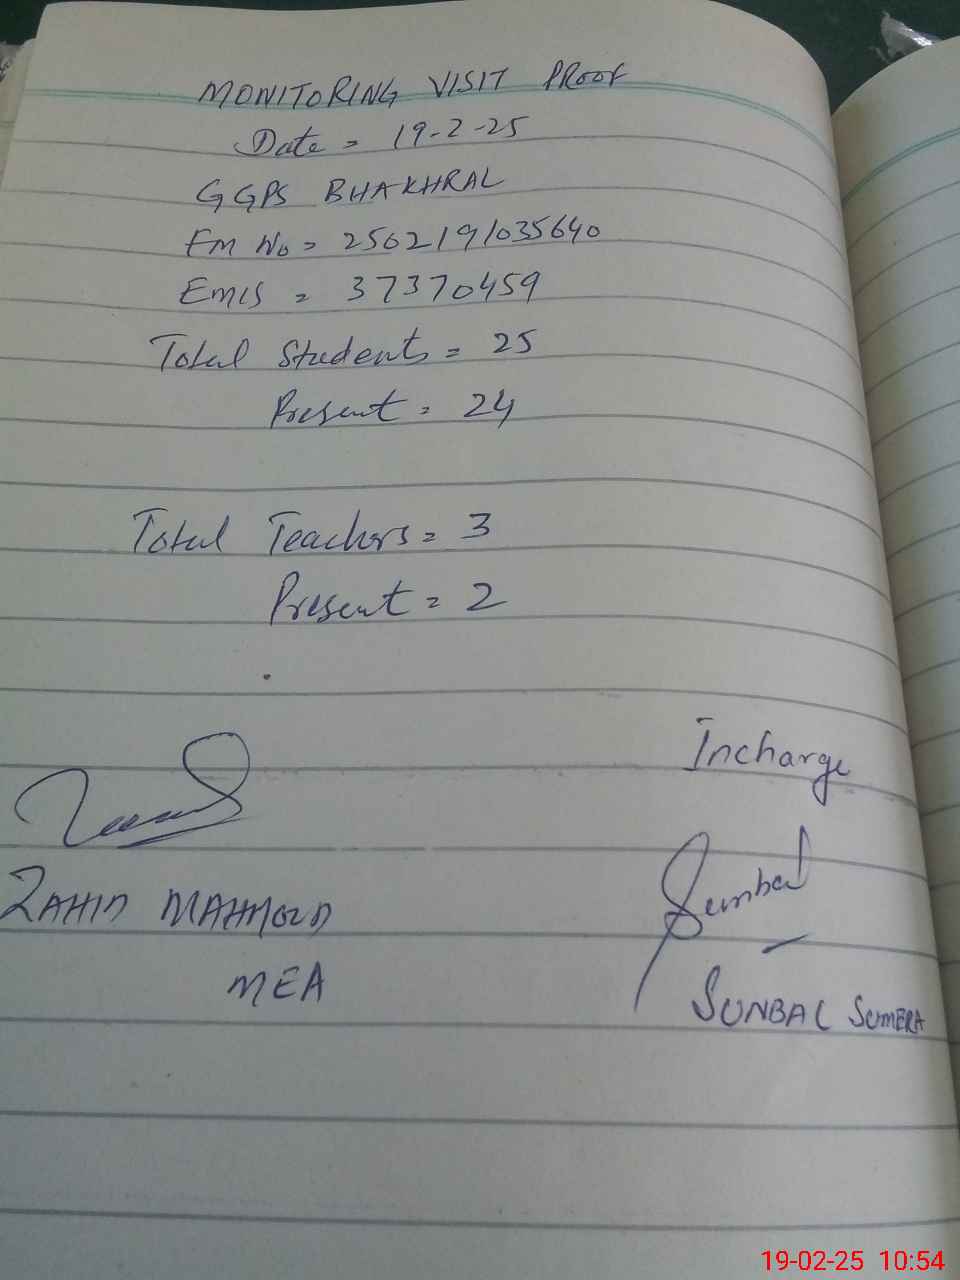 MONITORING VISIT PROOF
Date = 19-2-25
GGPS BHAKHRAL
FM No = 2502191035640
EMIS = 37370459
Total Students = 25
Present = 24
Total Teachers = 3
Present = 2
Incharge
Sumbal
ZAHID MAHMOOD
MEA
SUNBAL SUMERA
19-02-25 10:54